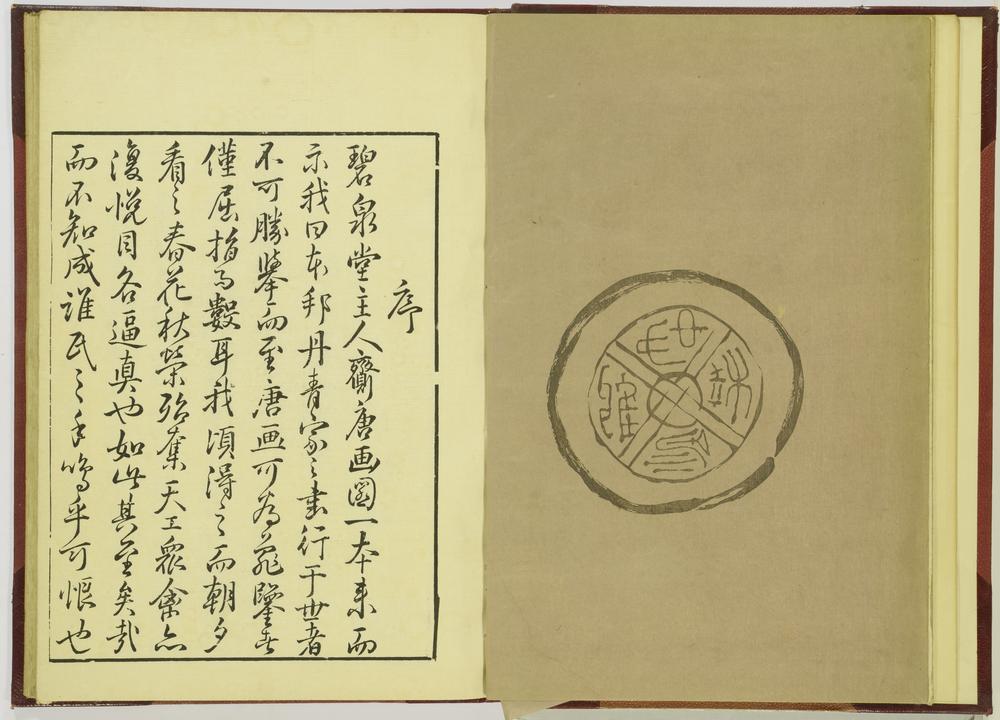 序
碧泉堂主人齎唐画圖一本来而
示我曰本邦丹青家之畫行于世者
不可勝挙而至唐画可為亀鑒者
僅屈指而數耳我頃得之而朝夕
看之春花秋葉殆奪天工衆禽亦
復悦目各逼真也如此其至矣哉
而不知成誰氏之手嗚乎可恨也